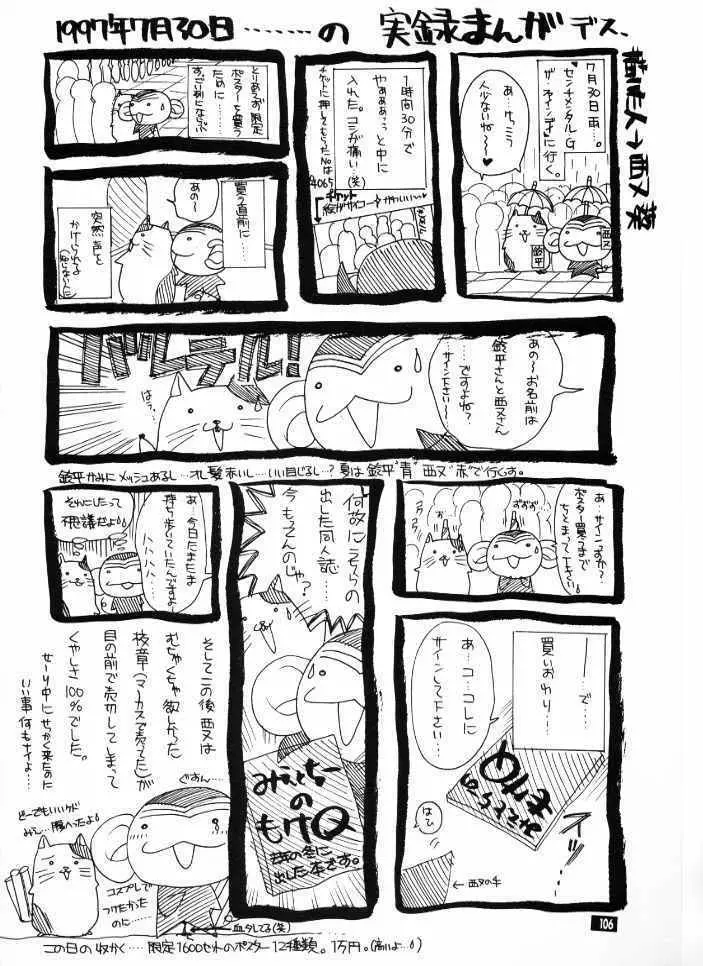 1997年7月30日………の 実録まんが デス、
描いた人→西又葵
7月30日雨…。
センチメンタルG
ザ・ネインディに
行く。
あ…けっこう
人少ないね〜♥
鈴平
西又
1時間30分で
やぁぁぁっっと中に
入れた。コシが痛い…(笑)
チケットに押してもらったNoは
4065
チケット
絵がサイコー かわいい〜
とりあえず限定
ポスターを買う
ために…
すっごい列にならぶ
買う直前に…
あの〜
突然声を
かけられる
あの〜お名前は
鈴平さんと西又さん
…ですよね?
サイン下さい〜
バレテル!
はぅ…
鈴平かみにメッシュあるし…オレ髪赤いし…いい目じるし…?夏は鈴平"青"西又"赤"で行くっす。
あ…サインっすか?
ポスター買うまで
ちとまって下さいっ
ずずず…
ーーで、
買いおわり…
あ…コ…コレに
サインして下さい…
スッ…
みえちーの
もけQ
はひ
←西又の手
何故にうちらの
出した同人誌…
今もってんのじゃ?
みえちーの
もけQ
去年の冬に
出した本です。
あ…今日たまたま
持ち歩いていたんですよー
ハハハハ…
それにしたって
不思議だよ
そしてこの後西又は
むちゃくちゃ欲しかった
枝章(マーカスで売ってた)が
目の前で売切してしまって
くやしさ100%でした。
せーり中にせっかく来たのに
いい事何もナイよ…
ぐおん…
どーでもいいケド
みー…腹へったよ
コスプレで
つけたかった
のに……
血タレてる(笑)
この日の収かく……限定1600セットのポスター12種類。1万円。(高いよ…)
106